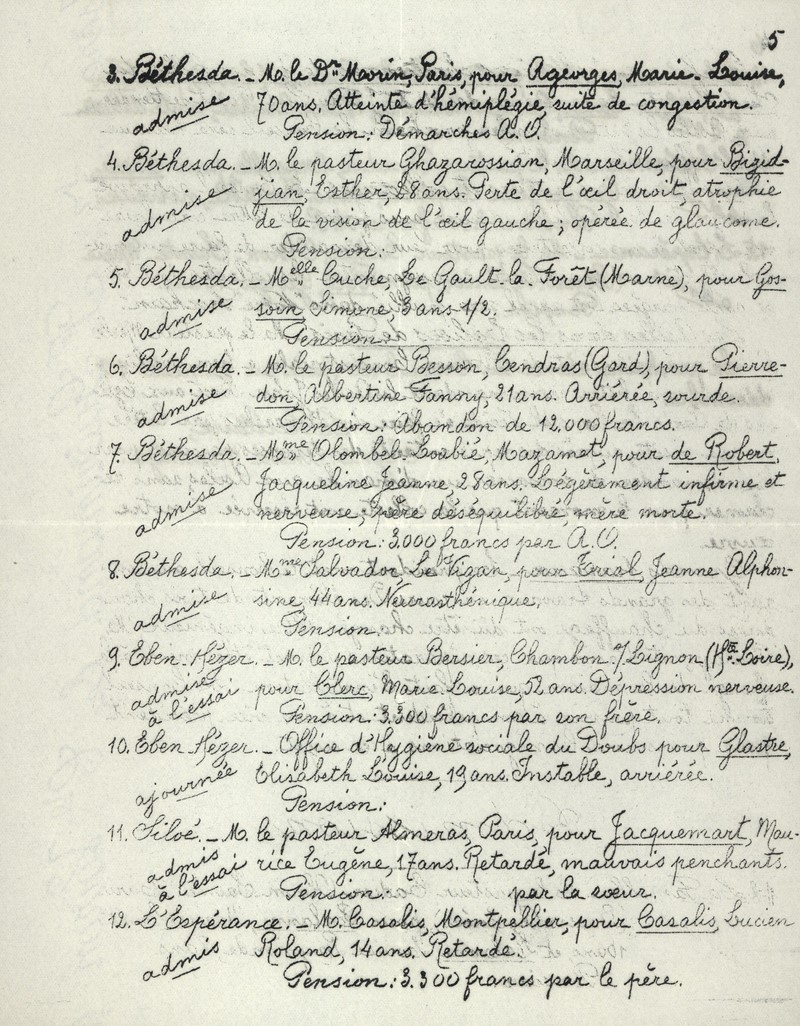 5
3. Béthesda. - M. le Dr. Morin, Paris, pour Ageorges, Marie-Louise,
admise
70 ans. Atteinte d'hémiplégie, suite de congestion.
Pension: Démarches A.O.
4. Béthesda. - M. le pasteur Ghazarossian, Marseille, pour Bizid-
admise
jian, Esther, 28 ans. Perte de l'œil droit, atrophie
de la vision de l'œil gauche; opérée de glaucome.
Pension:
5. Béthesda. - Melle Cuche, Le Gault-la-Forêt (Marne), pour Gos-
admise
soin, Simone, 3 ans 1/2.
Pension:
6. Béthesda. - M. le pasteur Besson, Cendras (Gard), pour Pierre-
admise
don, Albertine Fanny, 21 ans. Arriérée, sourde.
Pension: Abandon de 12.000 francs.
7. Béthesda. - Mme Olombel-Loubié, Mazamet, pour de Robert,
admise
Jacqueline Jeanne, 28 ans. Légèrement infirme et
nerveuse; père déséquilibré, mère morte.
Pension: 3.000 francs par A.O.
8. Béthesda. - Mme Salvador, Le Vigan, pour Jeanne Alphon-
admise
sine, 44 ans. Neurasthénique.
Pension.
9. Eben-Hézer. - M. le pasteur Bersier, Chambon s/Lignon (Hte. Loire),
admise
à l'essai
pour Clerc, Marie-Louise, 52 ans. Dépression nerveuse.
Pension: 3.300 francs par son frère.
10. Eben-Hézer. - Office d'Hygiène sociale du Doubs pour Glastre,
ajournée
Elisabeth Louise, 19 ans. Instable, arriérée.
Pension:
11. Siloé. - M. le pasteur Almeras, Paris, pour Jacquemart, Mau-
admis
à l'essai
rice Eugène, 17 ans. Retardé, mauvais penchants.
Pension: par la sœur.
12. L'Espérance. - M. Casalis, Montpellier, pour Casalis, Lucien
admis
Roland, 14 ans. Retardé.
Pension: 3.300 francs par le père.